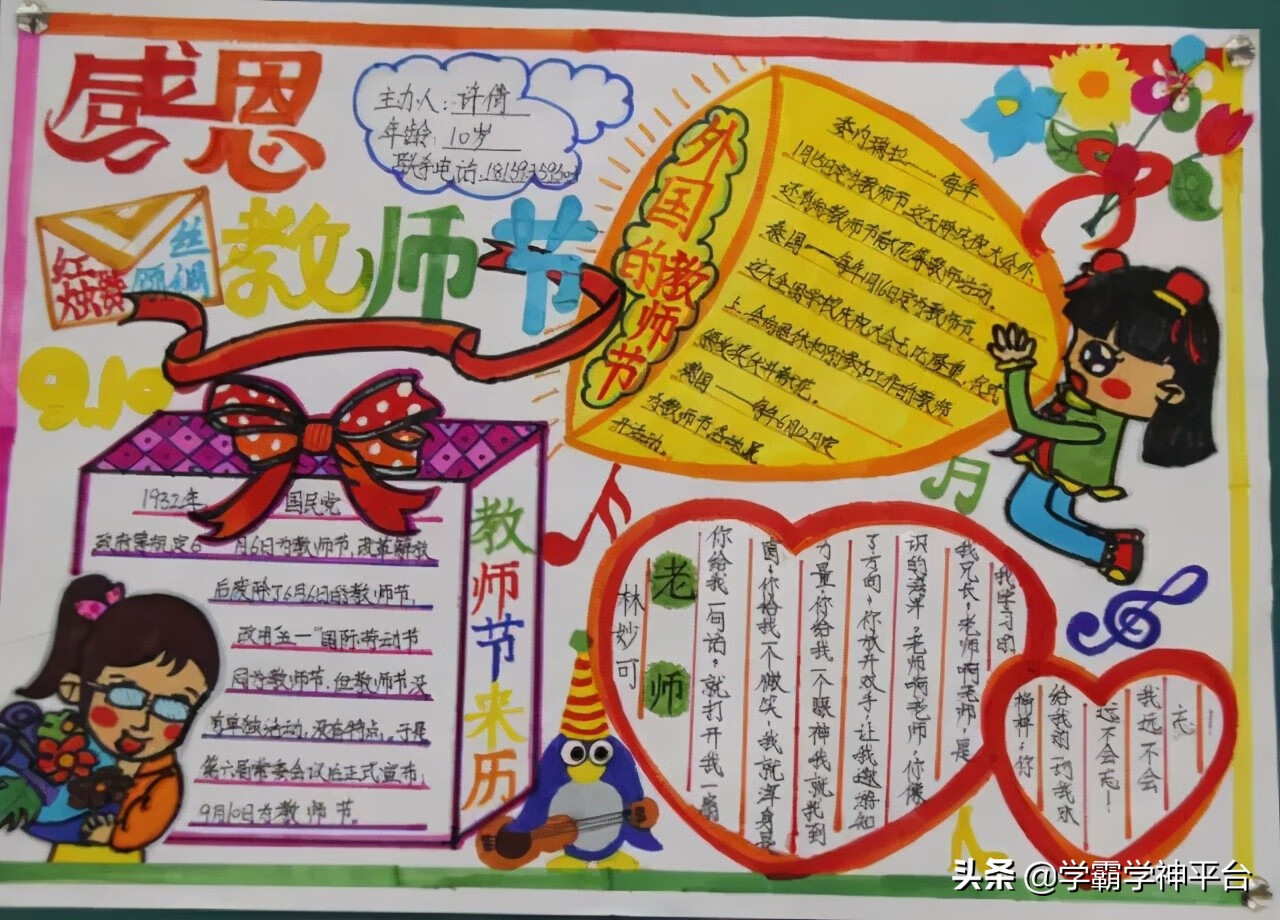 感恩
教师节
主办人：许倩
年龄：10岁
联系电话：
红
丝
烛
师
偶
9.10
外国的教师节
委内瑞拉——每年
1月15日定为教师节，这天除庆祝大会外，
还有向教师节献花等教师活动。
泰国——每年1月16日定为教师节。
这天全国学校庆祝大会无比隆重，仪式
上，会向退休和刚参加工作的教师
颁发奖状并献花。
德国——每年6月12日定
为教师节各地展
开活动。
教师节来历
1932年， 国民党
政府曾规定6 月6日为教师节，改革解放
后废除了6月6日的教师节，
改用"五一"国际劳动节
同为教师节，但教师节没
有单独活动，没有特点。于是
第六届常委会议后正式宣布，
9月10日为教师节。
老师
林妙可
你给我一句话，就打开我一扇
窗，你给我一个微笑，我就浑身是
力量，你给我一个眼神我就找到
了方向，你放开双手，让我遨游知
识的海洋，老师啊老师，你像
我兄长，老师啊老师，是
我学习的
榜样，你
给我的词我永
远不会忘！
我远不会
忘！
头条 @学霸学神平台